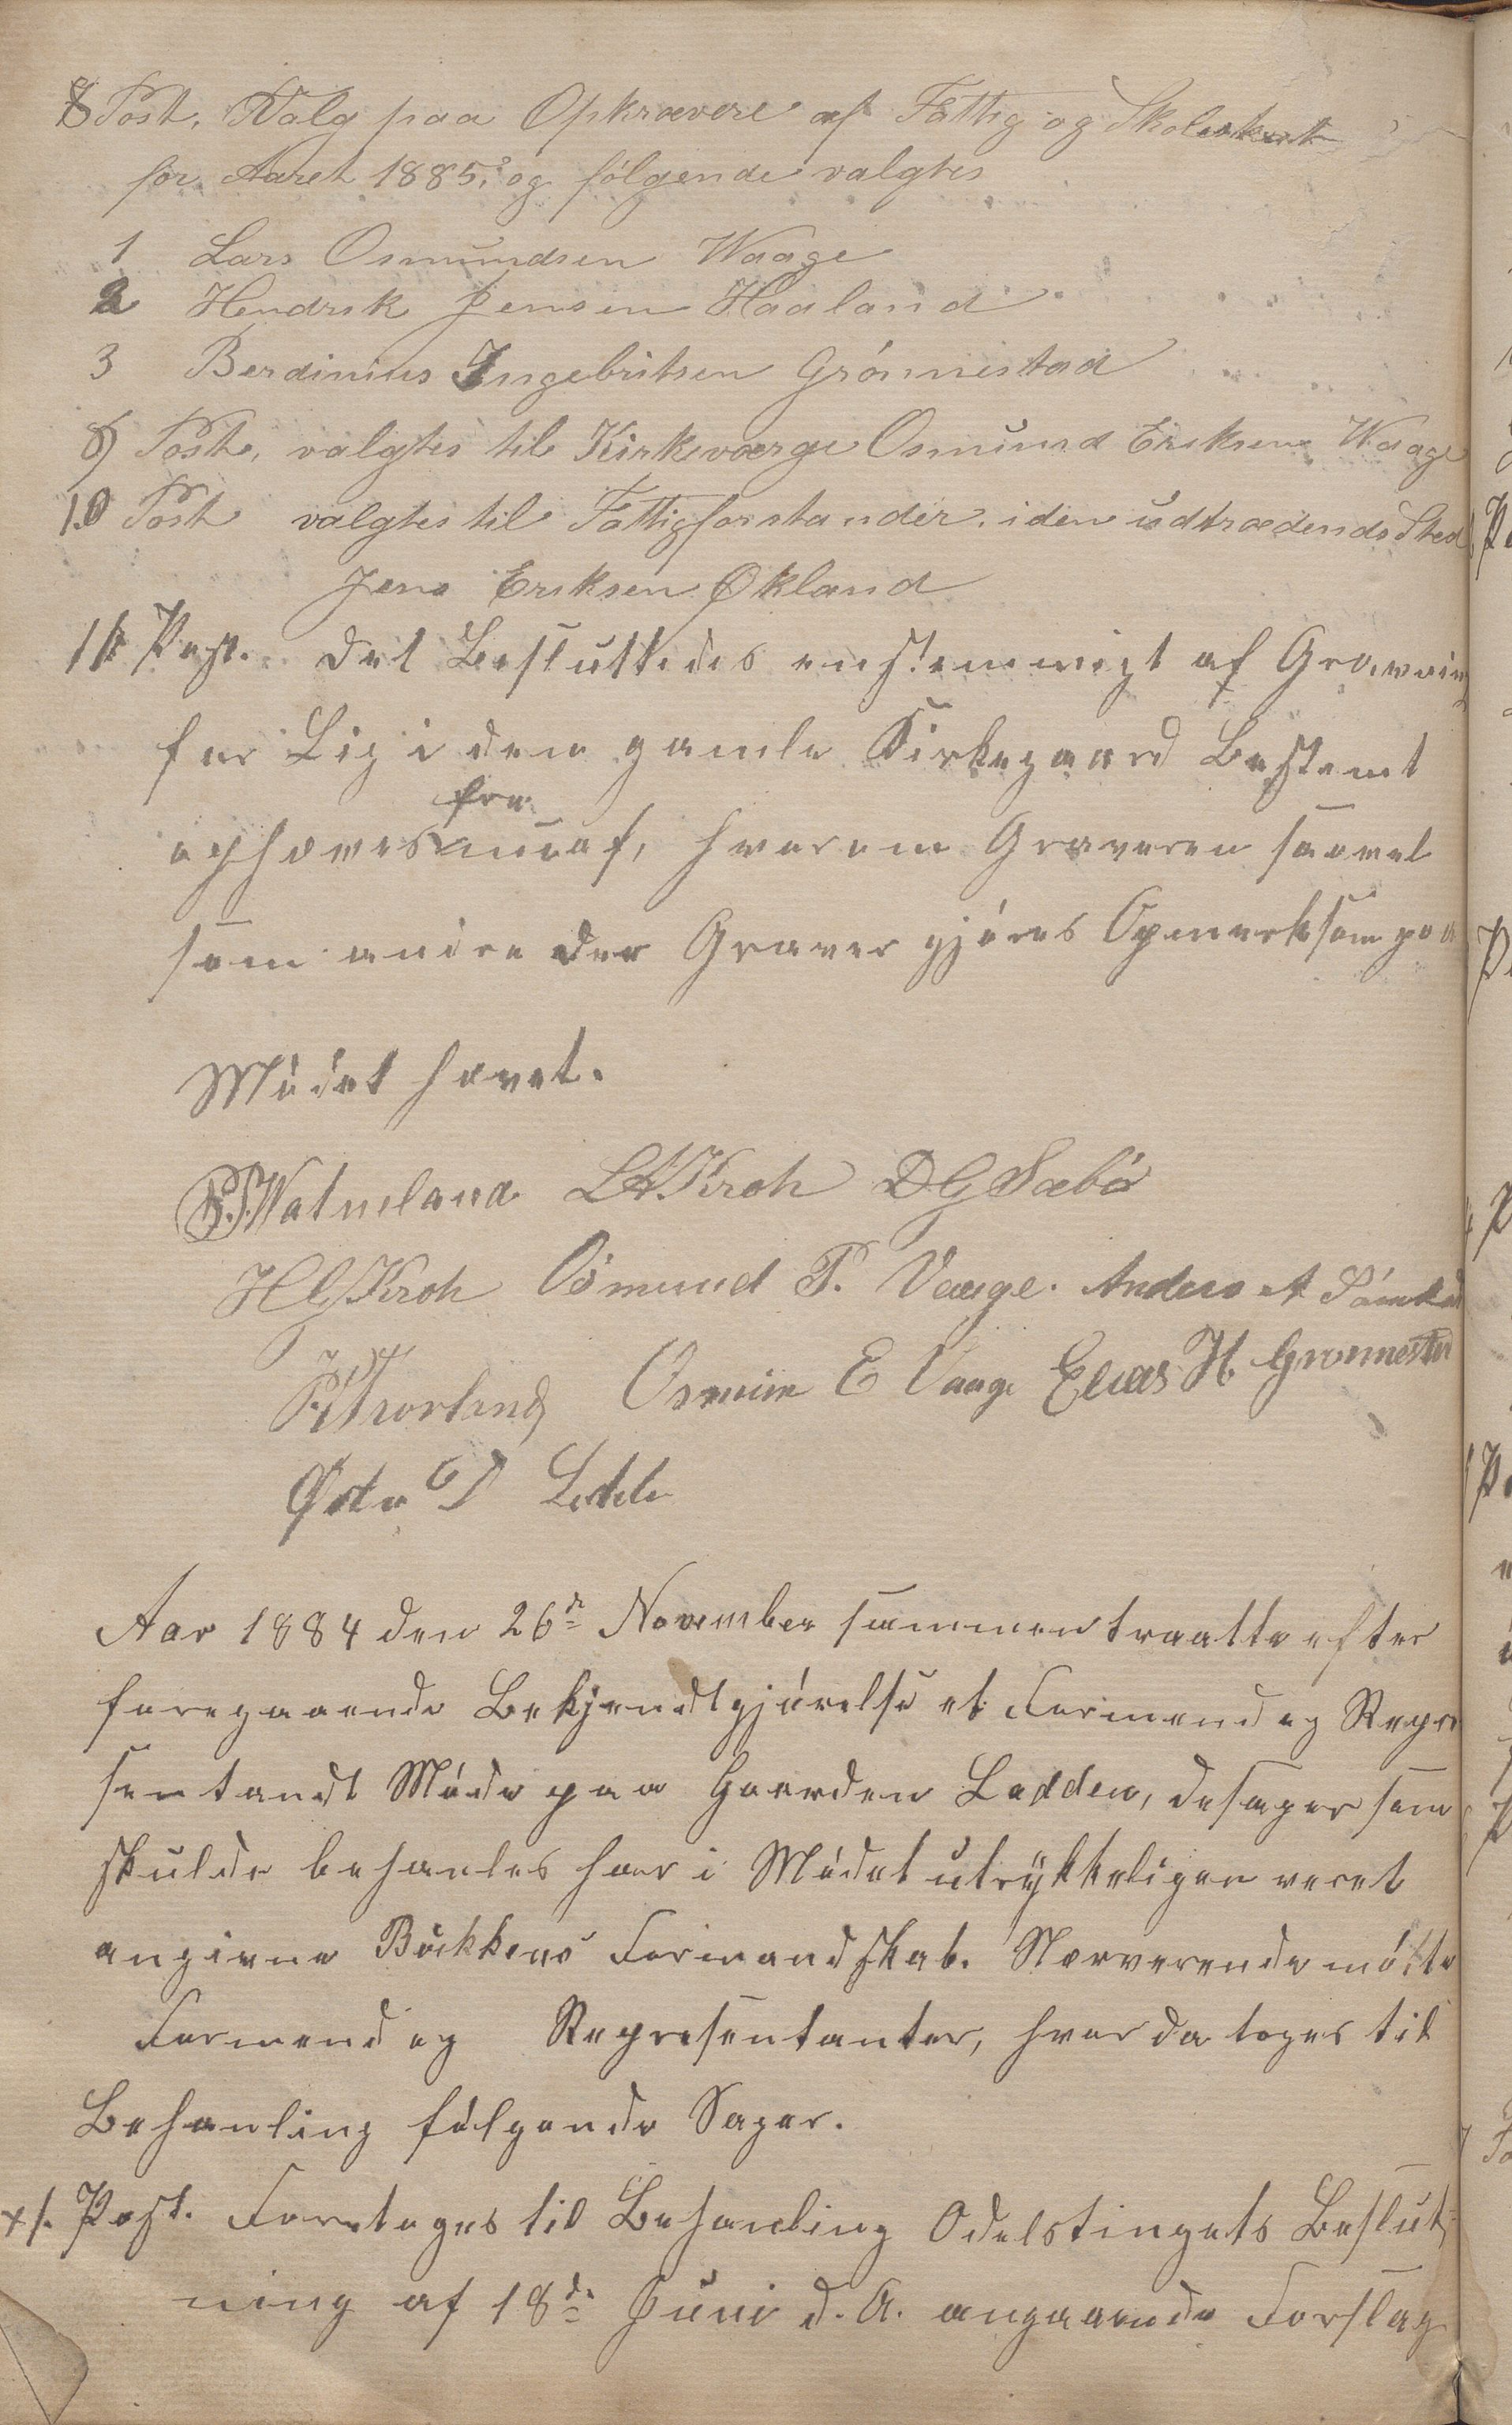 8 Post. Valg paa Opkrævere af Fattig og Skoleskat
for Aaret 1885, og følgende valgtes
1 Lars Osmundsen Waage
2 Hendrik Jensen Haaland
3 Berdinius Ingebritsen Grónnestad
9 Post, valgtes til Kirkeværge Osmund Eriksen Waage
10 Post valgtes til Fattigforstander i den udtrædends Sted
Jens Eriksen Økland
11 Post. Det Besluttedes enstemmigt at Gravning
for Lig i den gamle Kirkegaard Bestemt
ophøves fra nu af, hvorom Graveren saavel
som andre der Graver gjóres Opmerksom paa
Módet hævet.
Watneland L A Kroh D G Sæbó
H G Kroh Osmund P. Vaage. Anders A
Osmun E Vaage Elias H. Gronnestad
Aar 1884 den 26de November sammentraatte efter
foregaaende Bekjendtgjórelse et Formend og Repre
sentandt Móde paa Gaarden Ladden, de sager som
skulde behanles har i Módet utrykkeligen veret
angivne Bókkens Formandskab. Nærverende mótte
Formend og Representanter, hvor da toges til
Behanling fólgende Sager.
x 1. Post. Foretoges til Behanling Odelstingets Beslut
ning af 18de Juni d. A. angaaende Forslag